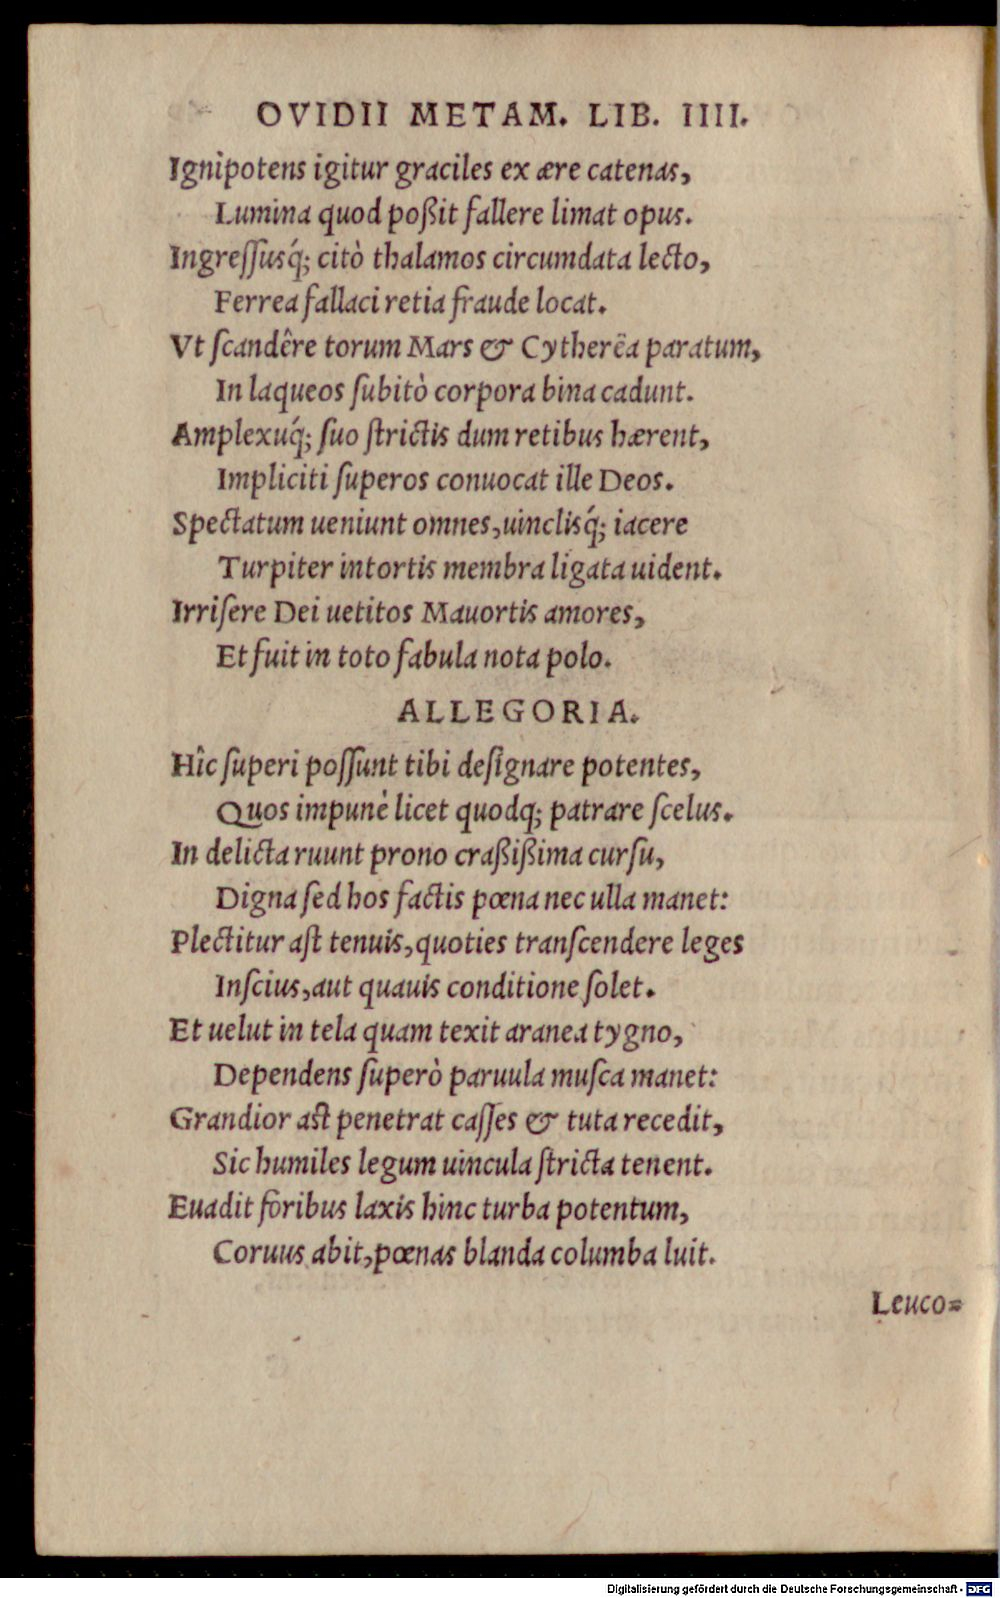 OVIDII METAM. LIB. IIII.
Ignipotens igitur graciles ex ære catenas,
Lumina quod poßit fallere limat opus.
Ingreſſusq́; citò thalamos circumdata lecto,
Ferrea fallaci retia fraude locat.
Vt ſcandêre torum Mars & Cytherëa paratum,
In laqueos ſubitò corpora bina cadunt.
Amplexuq́; ſuo ſtrictis dum retibus hærent,
Impliciti ſuperos conuocat ille Deos.
Spectatum ueniunt omnes, uinclisq́; iacere
Turpiter intortis membra ligata uident.
Irriſere Dei uetitos Mauortis amores,
Et fuit in toto fabula nota polo.
ALLEGORIA.
Hîc ſuperi poſſunt tibi deſignare potentes,
Quos impunè licet quodq; patrare ſcelus.
In delicta ruunt prono craßißima curſu,
Digna ſed hos factis pœna nec ulla manet:
Plectitur aſt tenuis, quoties tranſcendere leges
Inſcius, aut quauis conditione ſolet.
Et uelut in tela quam texit aranea tygno,
Dependens ſuperò paruula muſca manet:
Grandior aſt penetrat caſſes & tuta recedit,
Sic humiles legum uincula ſtricta tenent.
Euadit foribus laxis hinc turba potentum,
Coruus abit, pœnas blanda columba luit.
Leuco=
Digitalisierung gefördert durch die Deutsche Forschungsgemeinschaft - DFG